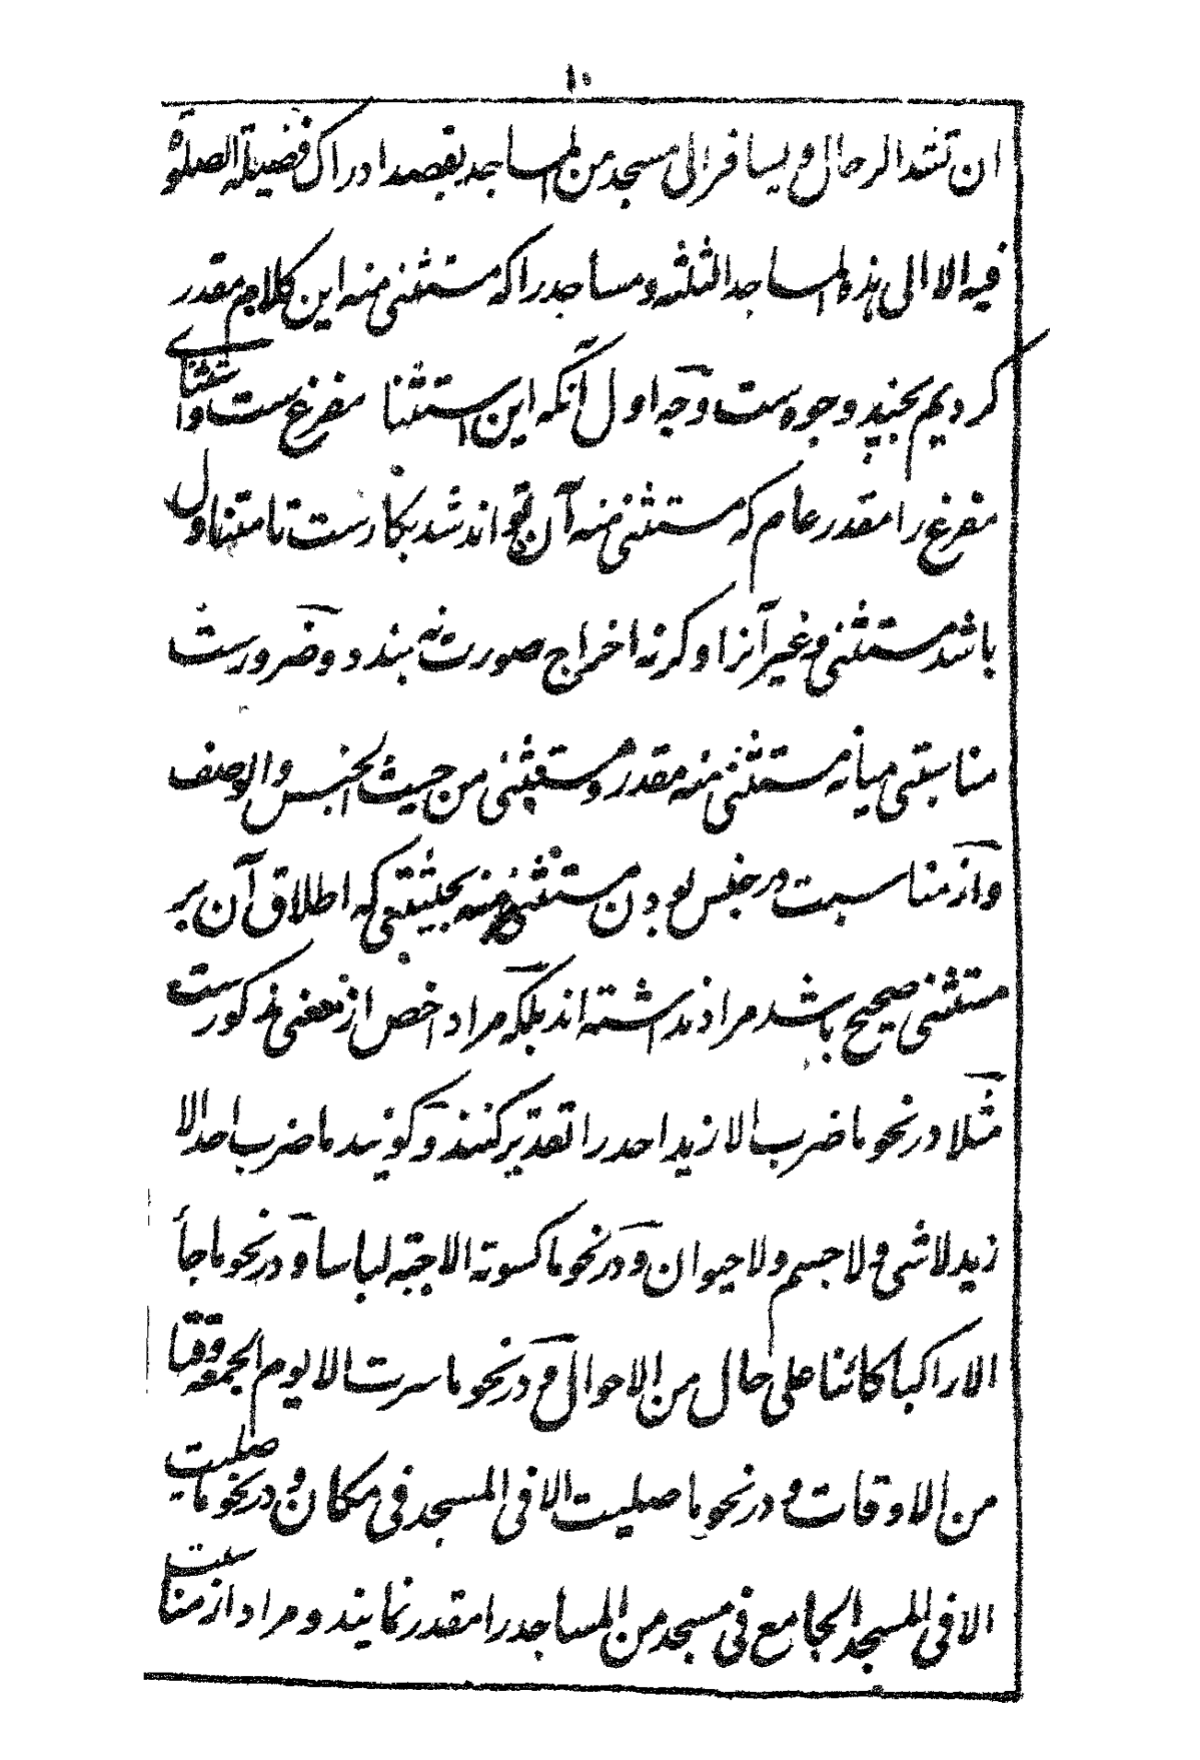 ١٠
ان تشد الرحال و یسافر الی مسجد من المساجد بقصد ادراک فضیلة الصلوة
فیه الا الی هذه المساجد الثلثه و مساجد را که مستثنی منه این کلام مقدر
کردیم بچند وجوه ست وجه اول آنکه این استثنا مفرغ ست و استثنای
مفرغ را مقدر عام که مستثنی منه آن تواند شد بکارست تا متناول
باشد مستثنی و غیر آنرا و گرنه اخراج صورت نه بندد و ضرورست
مناسبتی میانه مستثنی منه مقدر و مستثنی من حیث الجنس والوصف
و از مناسبت در جنس بودن مستثنی منه بحیثیتی که اطلاق آن بر
مستثنی صحیح باشد مراد نداشته اند بلکه مراد اخص از معنی مذکورست
مثلا در نحو ما ضرب الا زید احد را تقدیر کنند و گویند ما ضرب احد الا
زید لا شی و لا جسم و لا حیوان و در نحو ما کسوته الا جبة لباسا و در نحو ما جأ
الا راکبا کائنا علی حال من الاحوال و در نحو ما سرت الا یوم الجمعه وقتا
من الاوقات و در نحو ما صلیت الا فی المسجد فی مکان و در نحو ما صلیت
الا فی المسجد الجامع فی مسجد من المساجد را مقدر نمایند و مراد از مناسبت